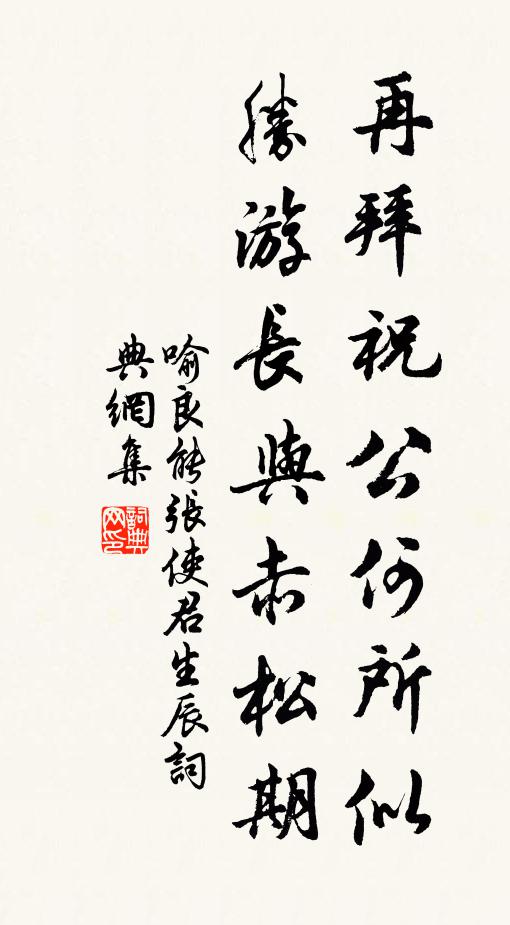 再拜祝公何所似
勝游長與赤松期
喻良能張使君生辰詞
典網集
詞典
网印